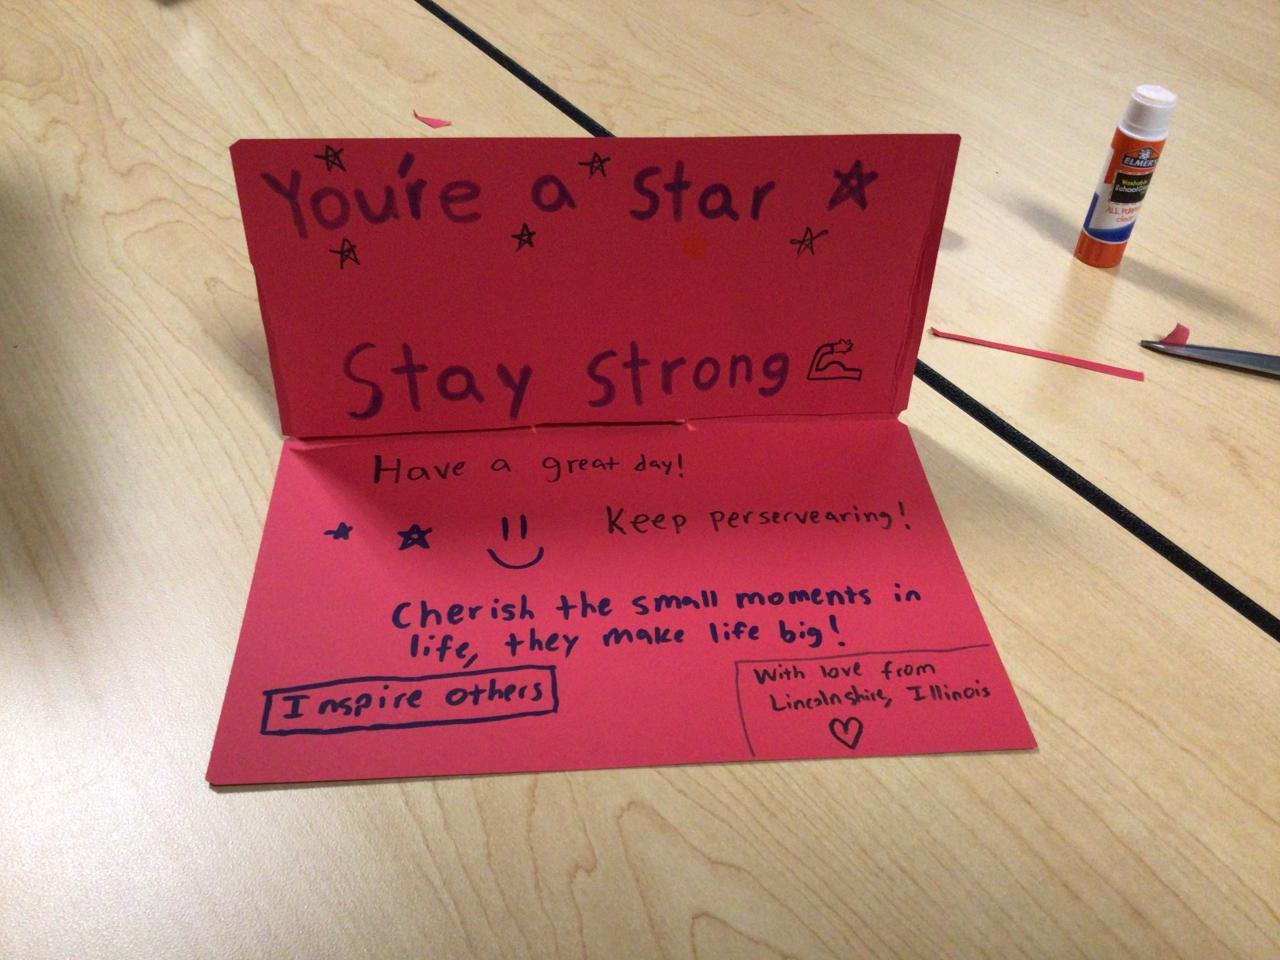 You're a Star
Stay strong
Have a great day!
Keep perservearing!
Cherish the small moments in
life, they make life big!
Inspire others
With love from
Lincolnshire, Illinois
ELMER'S
Washable
School Glue
ALL PURPOSE